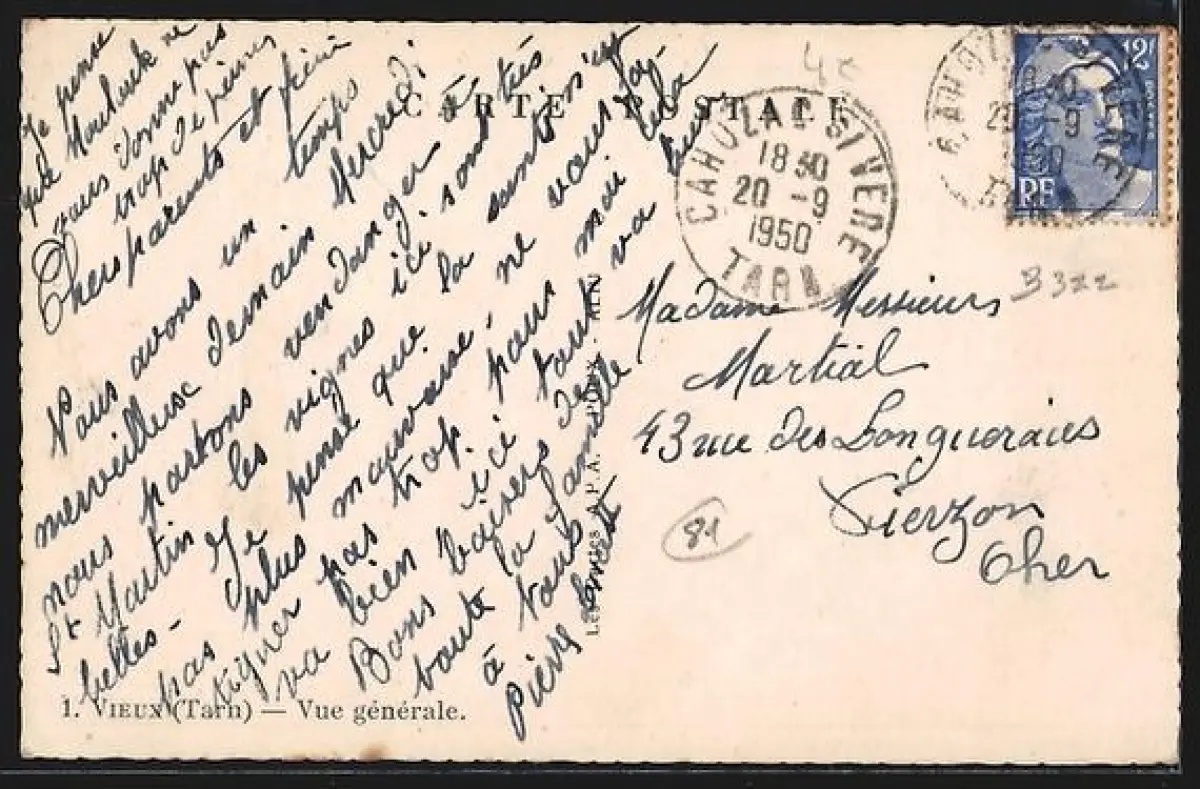 Je pense
que Moutuck ne
vous donne pas
trop de peine
CARTE POSTALE
Chers parents et frère
Nous avons un temps
merveilleux demain Mercredi
nous partons vendanger à
St Martin les vignes ici sont très
belles - Je pense que la santé n'est
pas plus mauvaise. ne vous fa-
tiguer pas trop. pour moi cela
va bien ici tout va bien
Bons baisers de
toute la famille
à tous
Pierre
1. VIEUX (Tarn) — Vue générale.
A.P.A.
CAHUZAC S/VERE
18 30
20 -9
1950
TARN
12F
RF
4€
3322
Madame Messieurs
Martial
43 rue des Longueraies
Vierzon
Cher
81